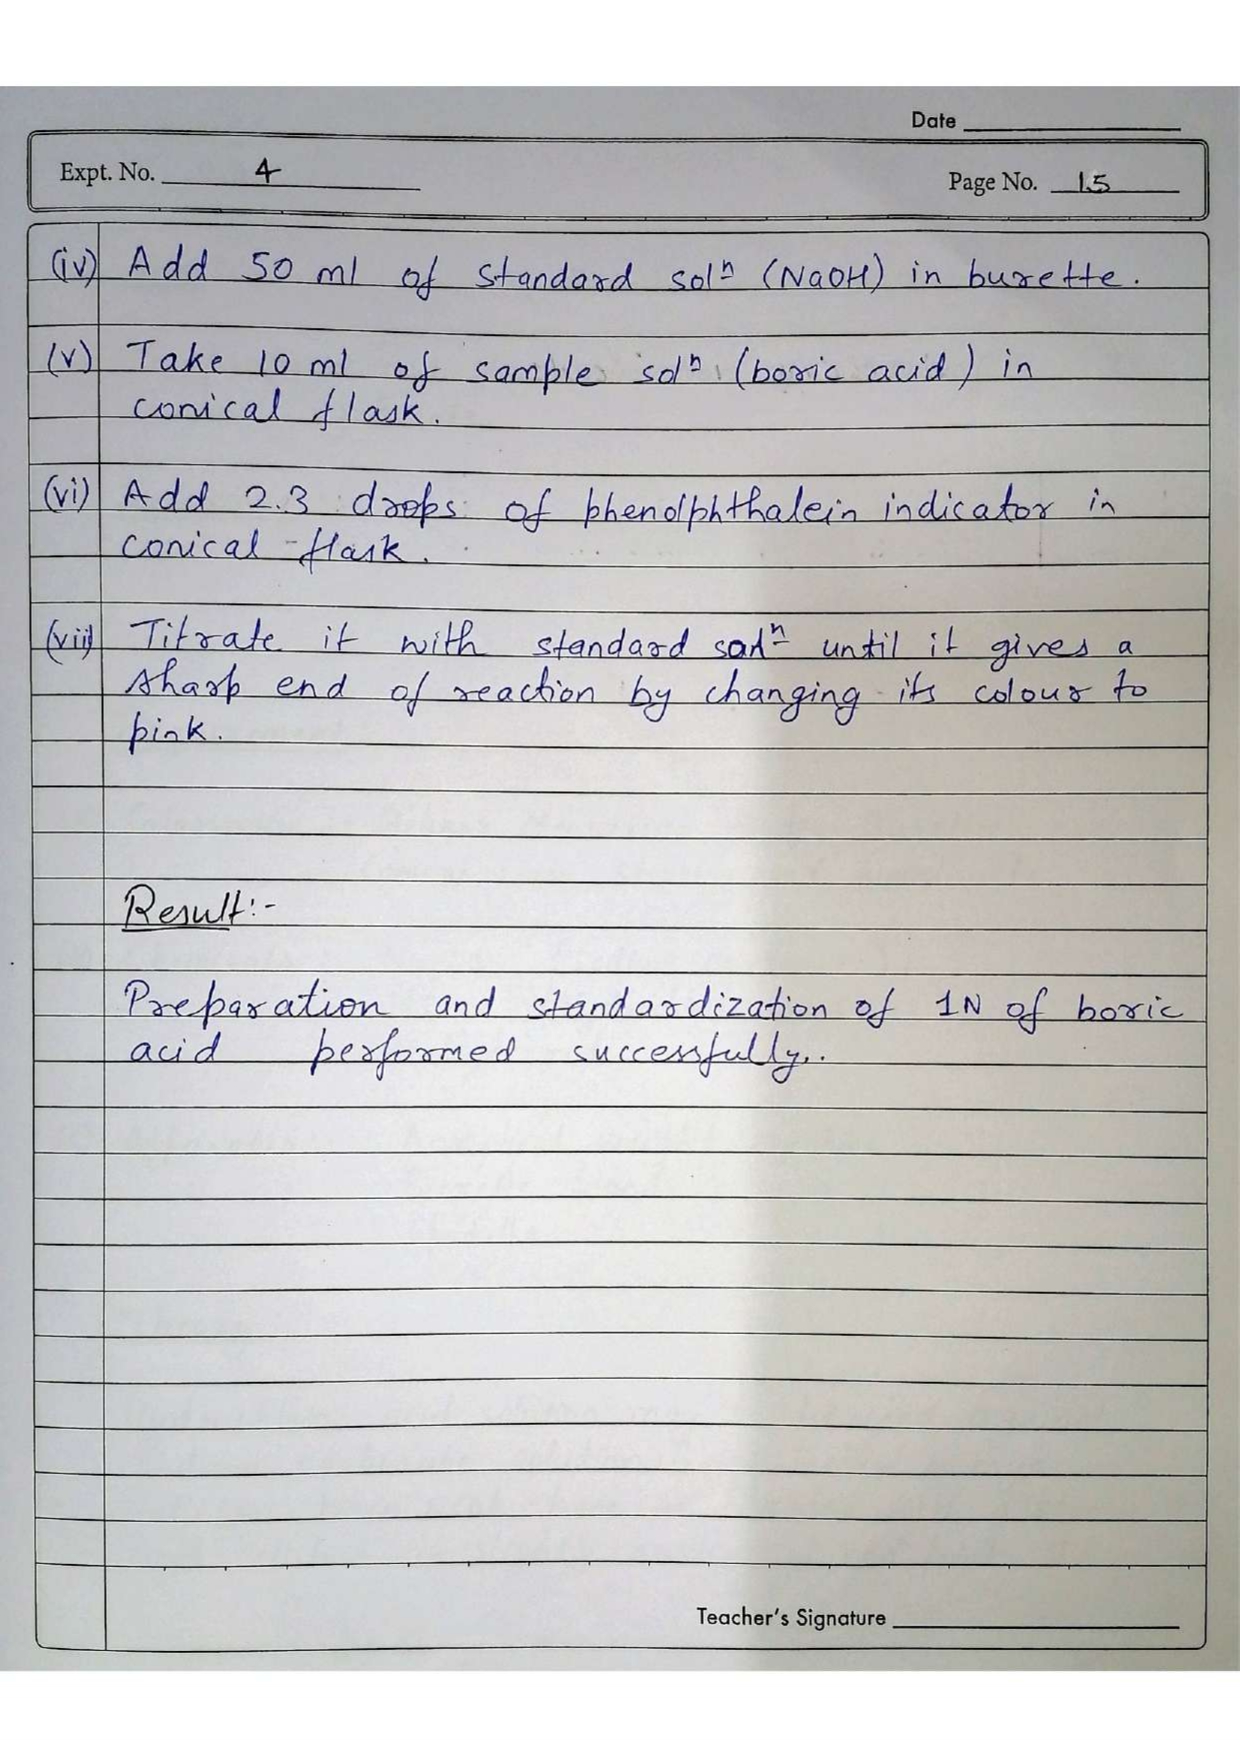 Date
Expt. No. 4
Page No. 15
(iv) Add 50 ml of standard solⁿ (NaOH) in burette.
(v) Take 10 ml of sample solⁿ (boric acid) in
conical flask.
(vi) Add 2.3 drops of phenolphthalein indicator in
conical flask.
(vii) Titrate it with standard solⁿ until it gives a
sharp end of reaction by changing its colour to
pink.
Result:-
Preparation and standardization of 1N of boric
acid performed successfully.
Teacher's Signature